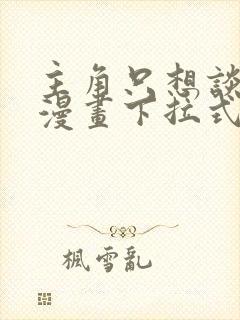 主角只想談
漫畫下拉式
楓雪亂